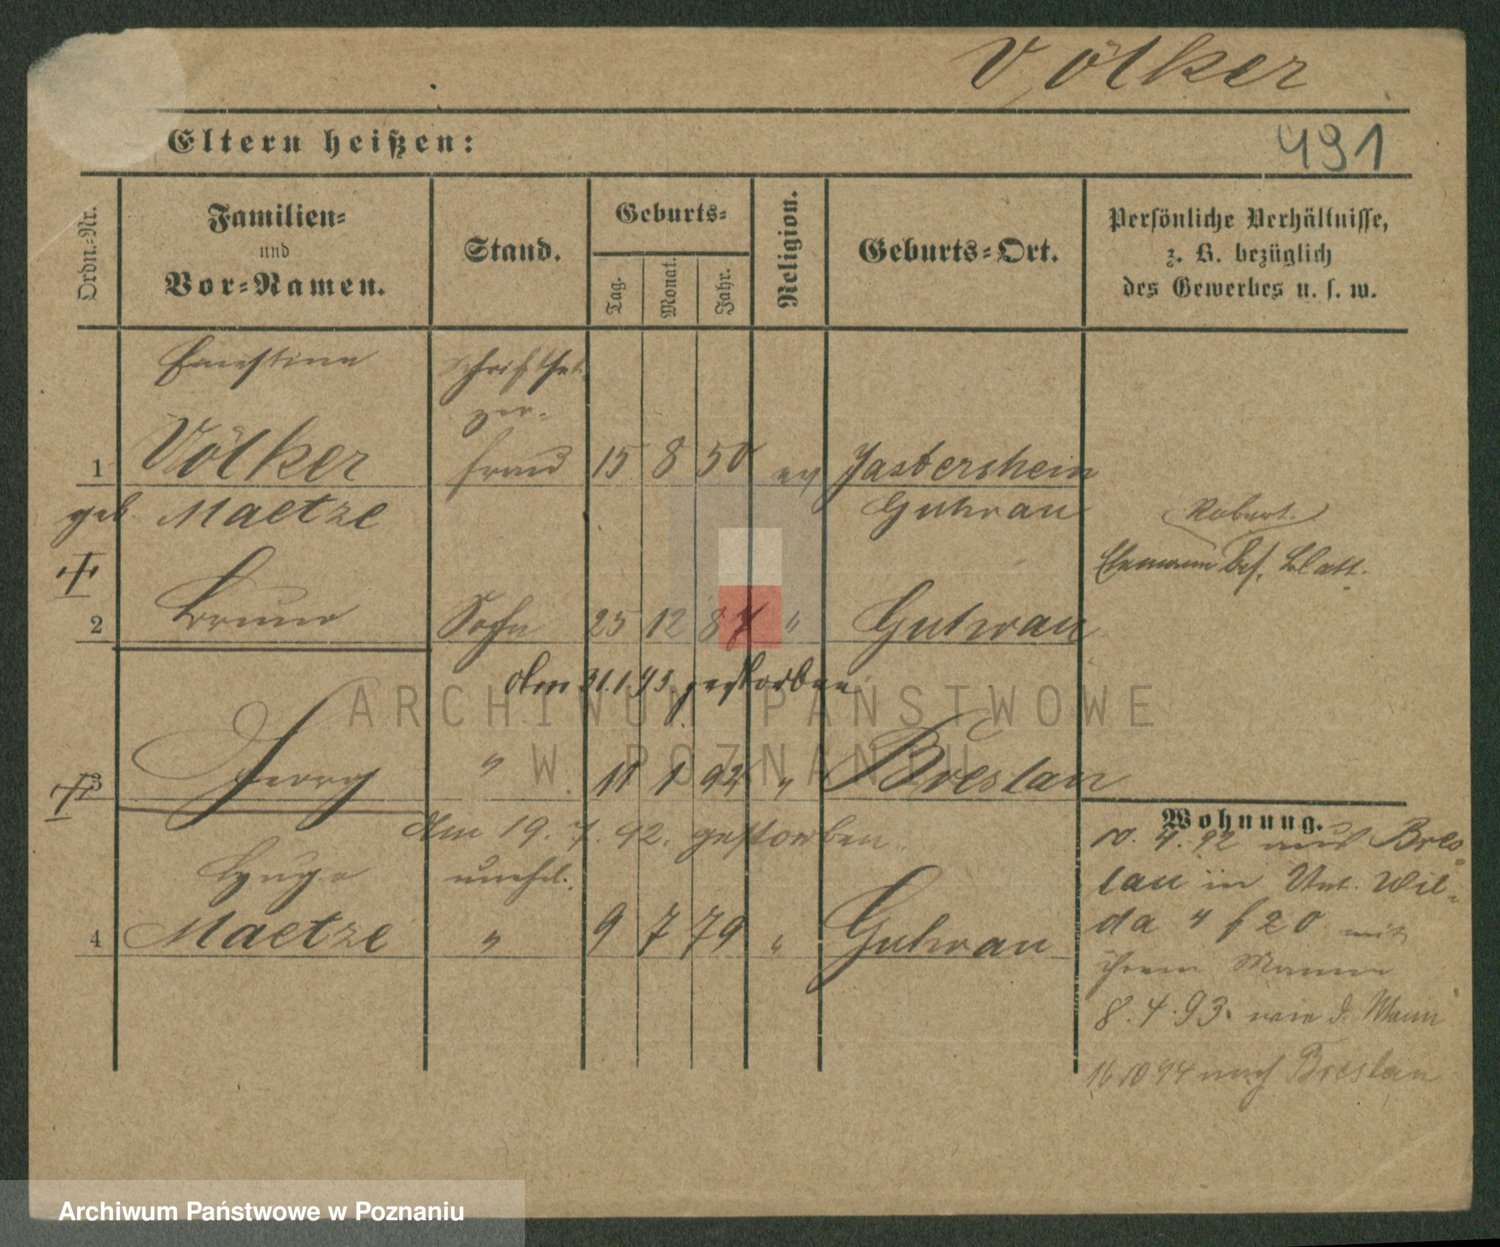 Völker
Eltern heißen:
491
Ordn.-Nr.
Familien-
und
Vor-Namen.
Stand.
Geburts-
Tag.
Monat.
Jahr.
Religion.
Geburts-Ort.
Persönliche Verhältnisse,
z. B. bezüglich
des Gewerbes u. s. w.
Ernestine
Schriftset
zer-
1 Völker frau 15 8 50 ev Jastersheim
geb Maetze Guhrau
Robert
Ehemann Bes. Blatt.
2 Bruno Sohn 25 12 87 " Guhrau
Am 31.1.93 gestorben
3 Georg " 11 1 92 " Breslau
Am 19. 7. 92. gestorben
Wohnung.
10. 4. 92 aus Bres-
Hugo unehl.
lau in Unt. Wil-
4 Maetze " 9 7 79 " Guhrau
da 4 f 20 mit
ihrem Manne
8. 4. 93. wie d. Mann
16 10 94 nach Breslau
ARCHIWUM PAŃSTWOWE
W POZNANIU
Archiwum Państwowe w Poznaniu